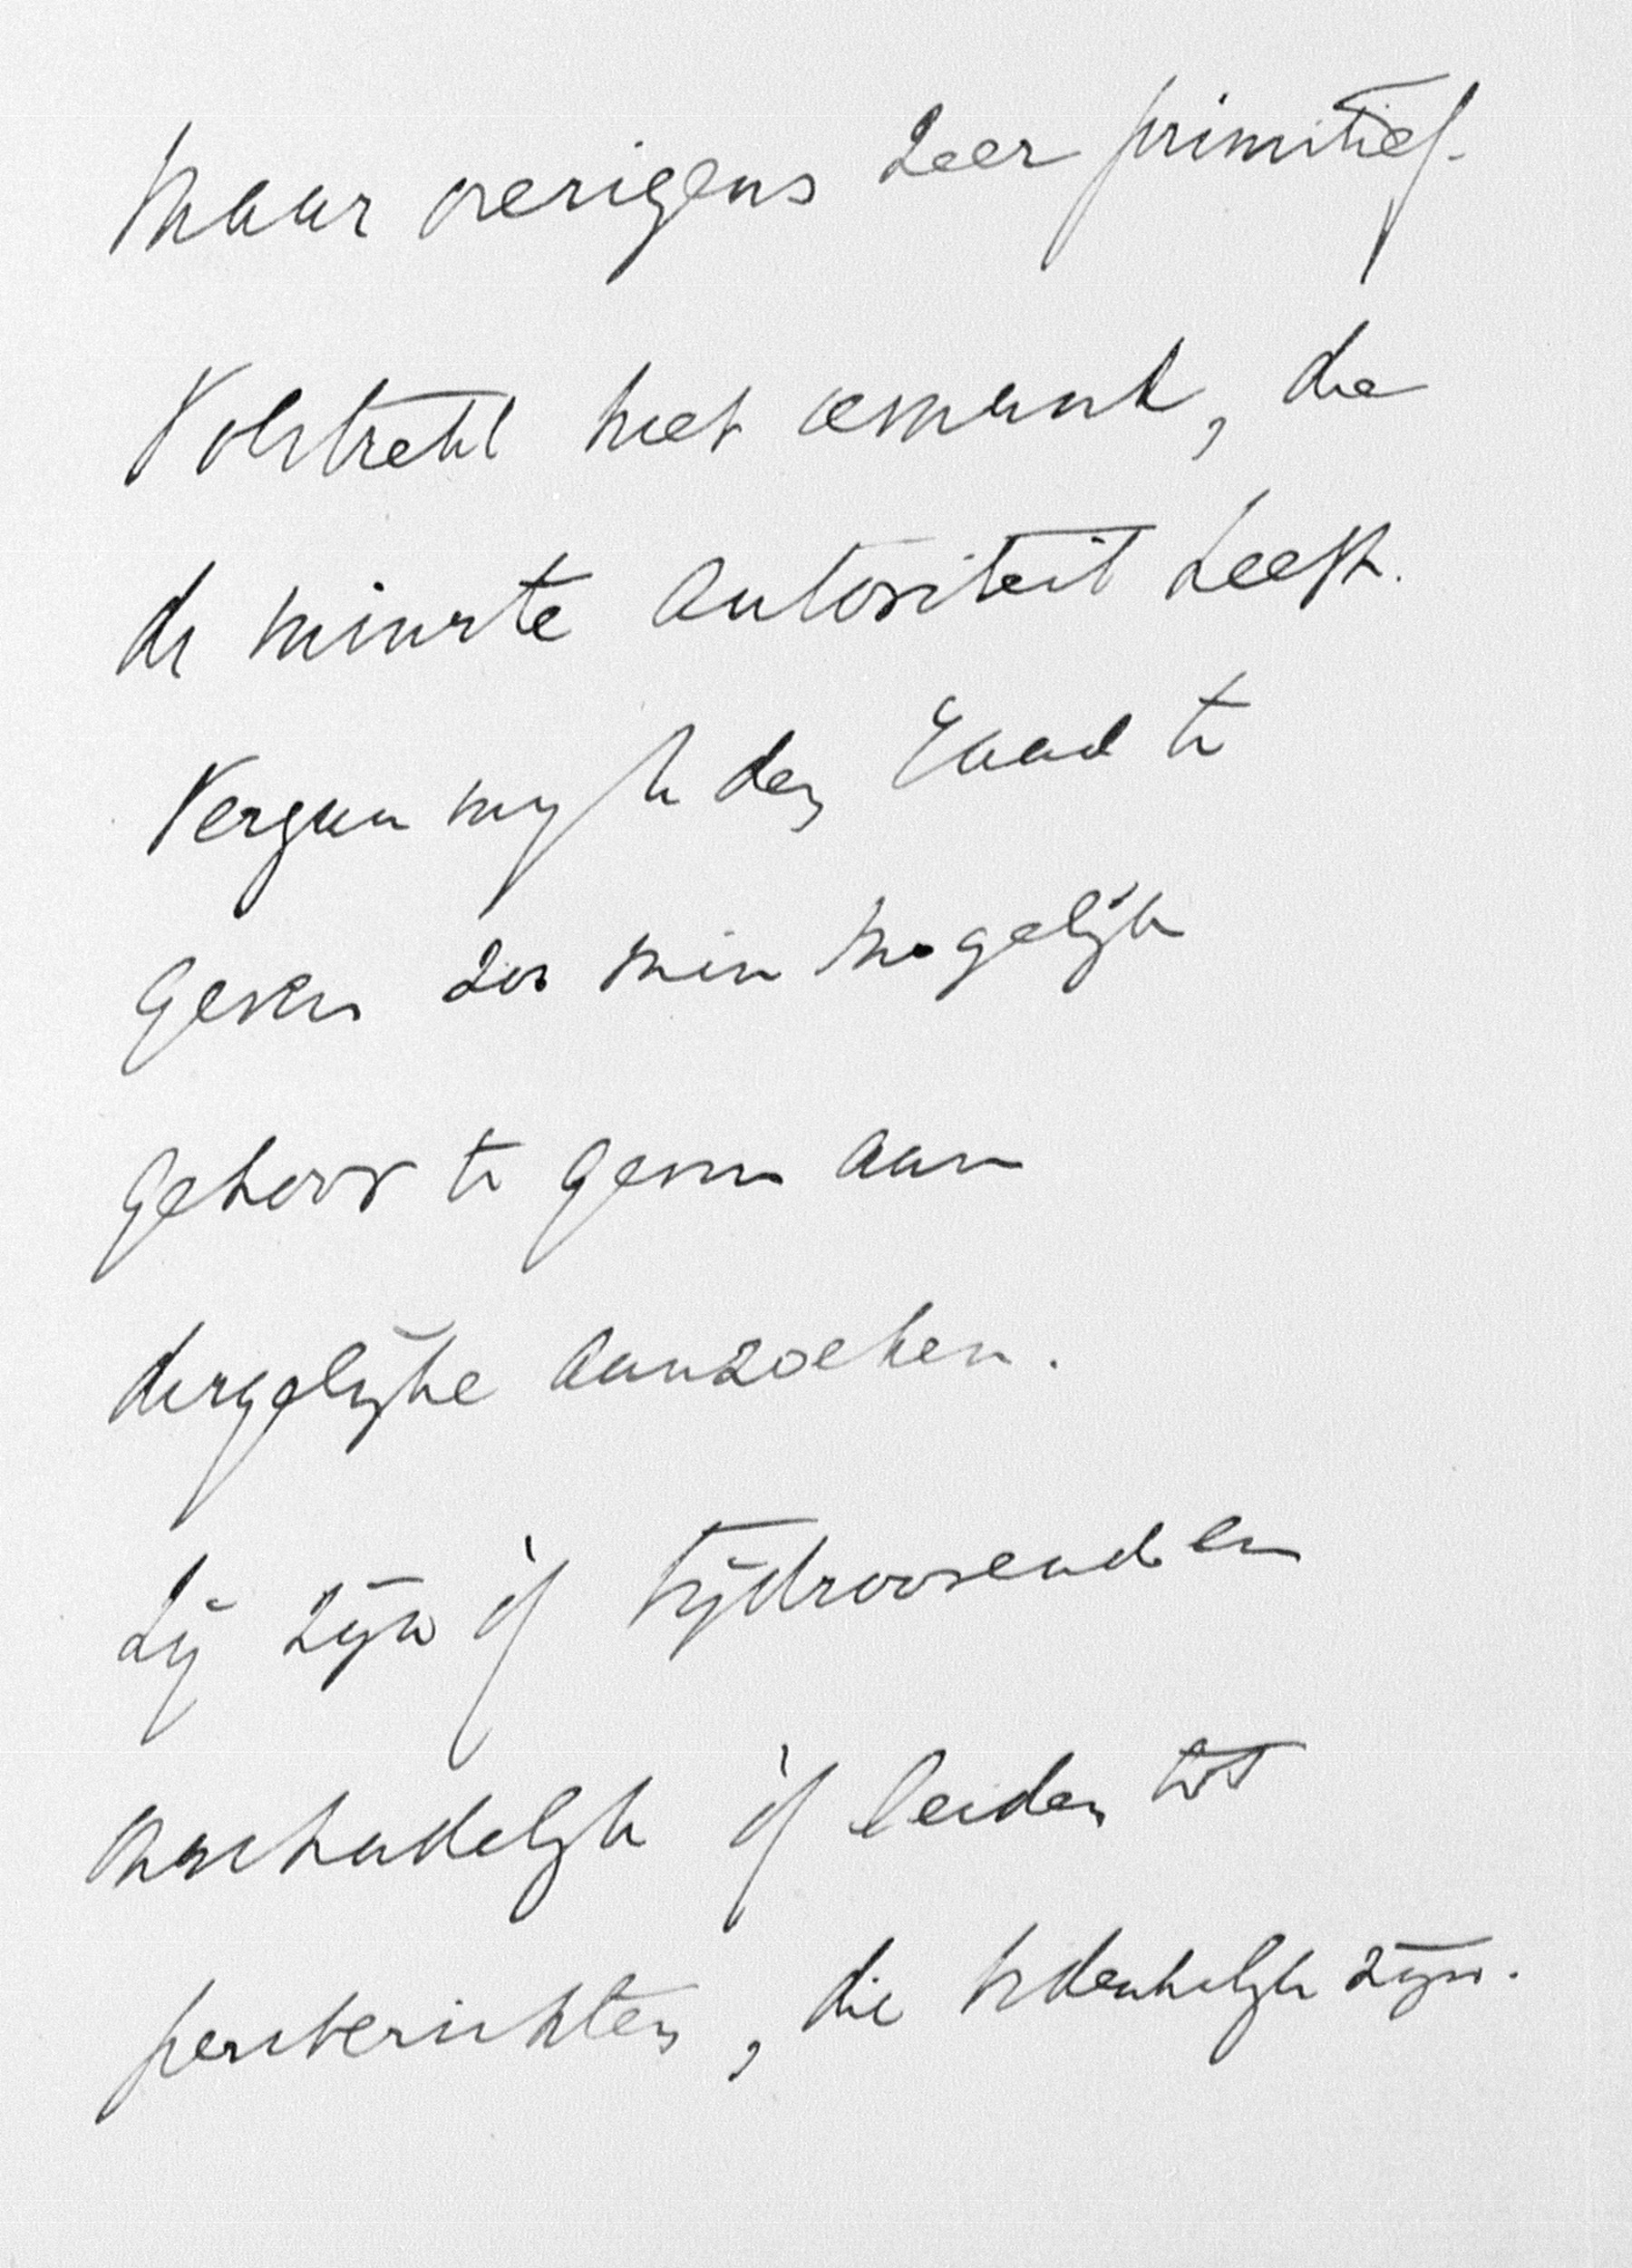 maar overigens zeer primitief.
Volstrekt niet iemand, die
de minste autoriteit heeft.
Vergun mij U den raad te
geven zoo min mogelijk
gehoor te geven aan
dergelijke aanzoeken.
Zij zijn óf tijdroovend en
onschadelijk óf leiden tot
persberichten, die bedenkelijk zijn.